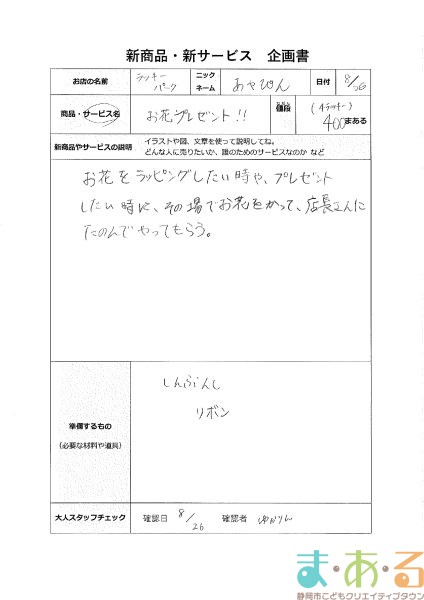 新商品・新サービス 企画書
お店の名前 ラッキーパーク ニックネーム あやぴん 日付 8/26
商品・サービス名 お花プレゼント!! 値段 (4ラッキー) 400まある
新商品やサービスの説明 イラストや図、文章を使って説明してね。
どんな人に売りたいか、誰のためのサービスなのか など
お花をラッピングしたい時や、プレゼント
したい時に、その場でお花をかって、店長さんに
たのんでやってもらう。
準備するもの
(必要な材料や道具)
しんぶんし
リボン
大人スタッフチェック 確認日 8/26 確認者 ゆかりん
ま・あ・る
静岡市こどもクリエイティブタウン